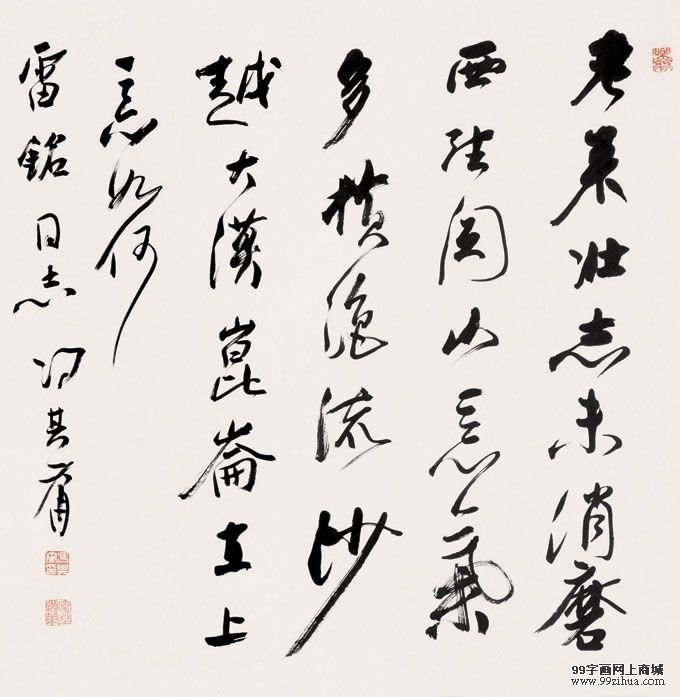 老來壯志未消磨
西望關山意氣
多橫絕流沙
越大漠崑崙直上
意如何
雷銘同志 馮其庸
99字画网上商城
www.99zihua.com